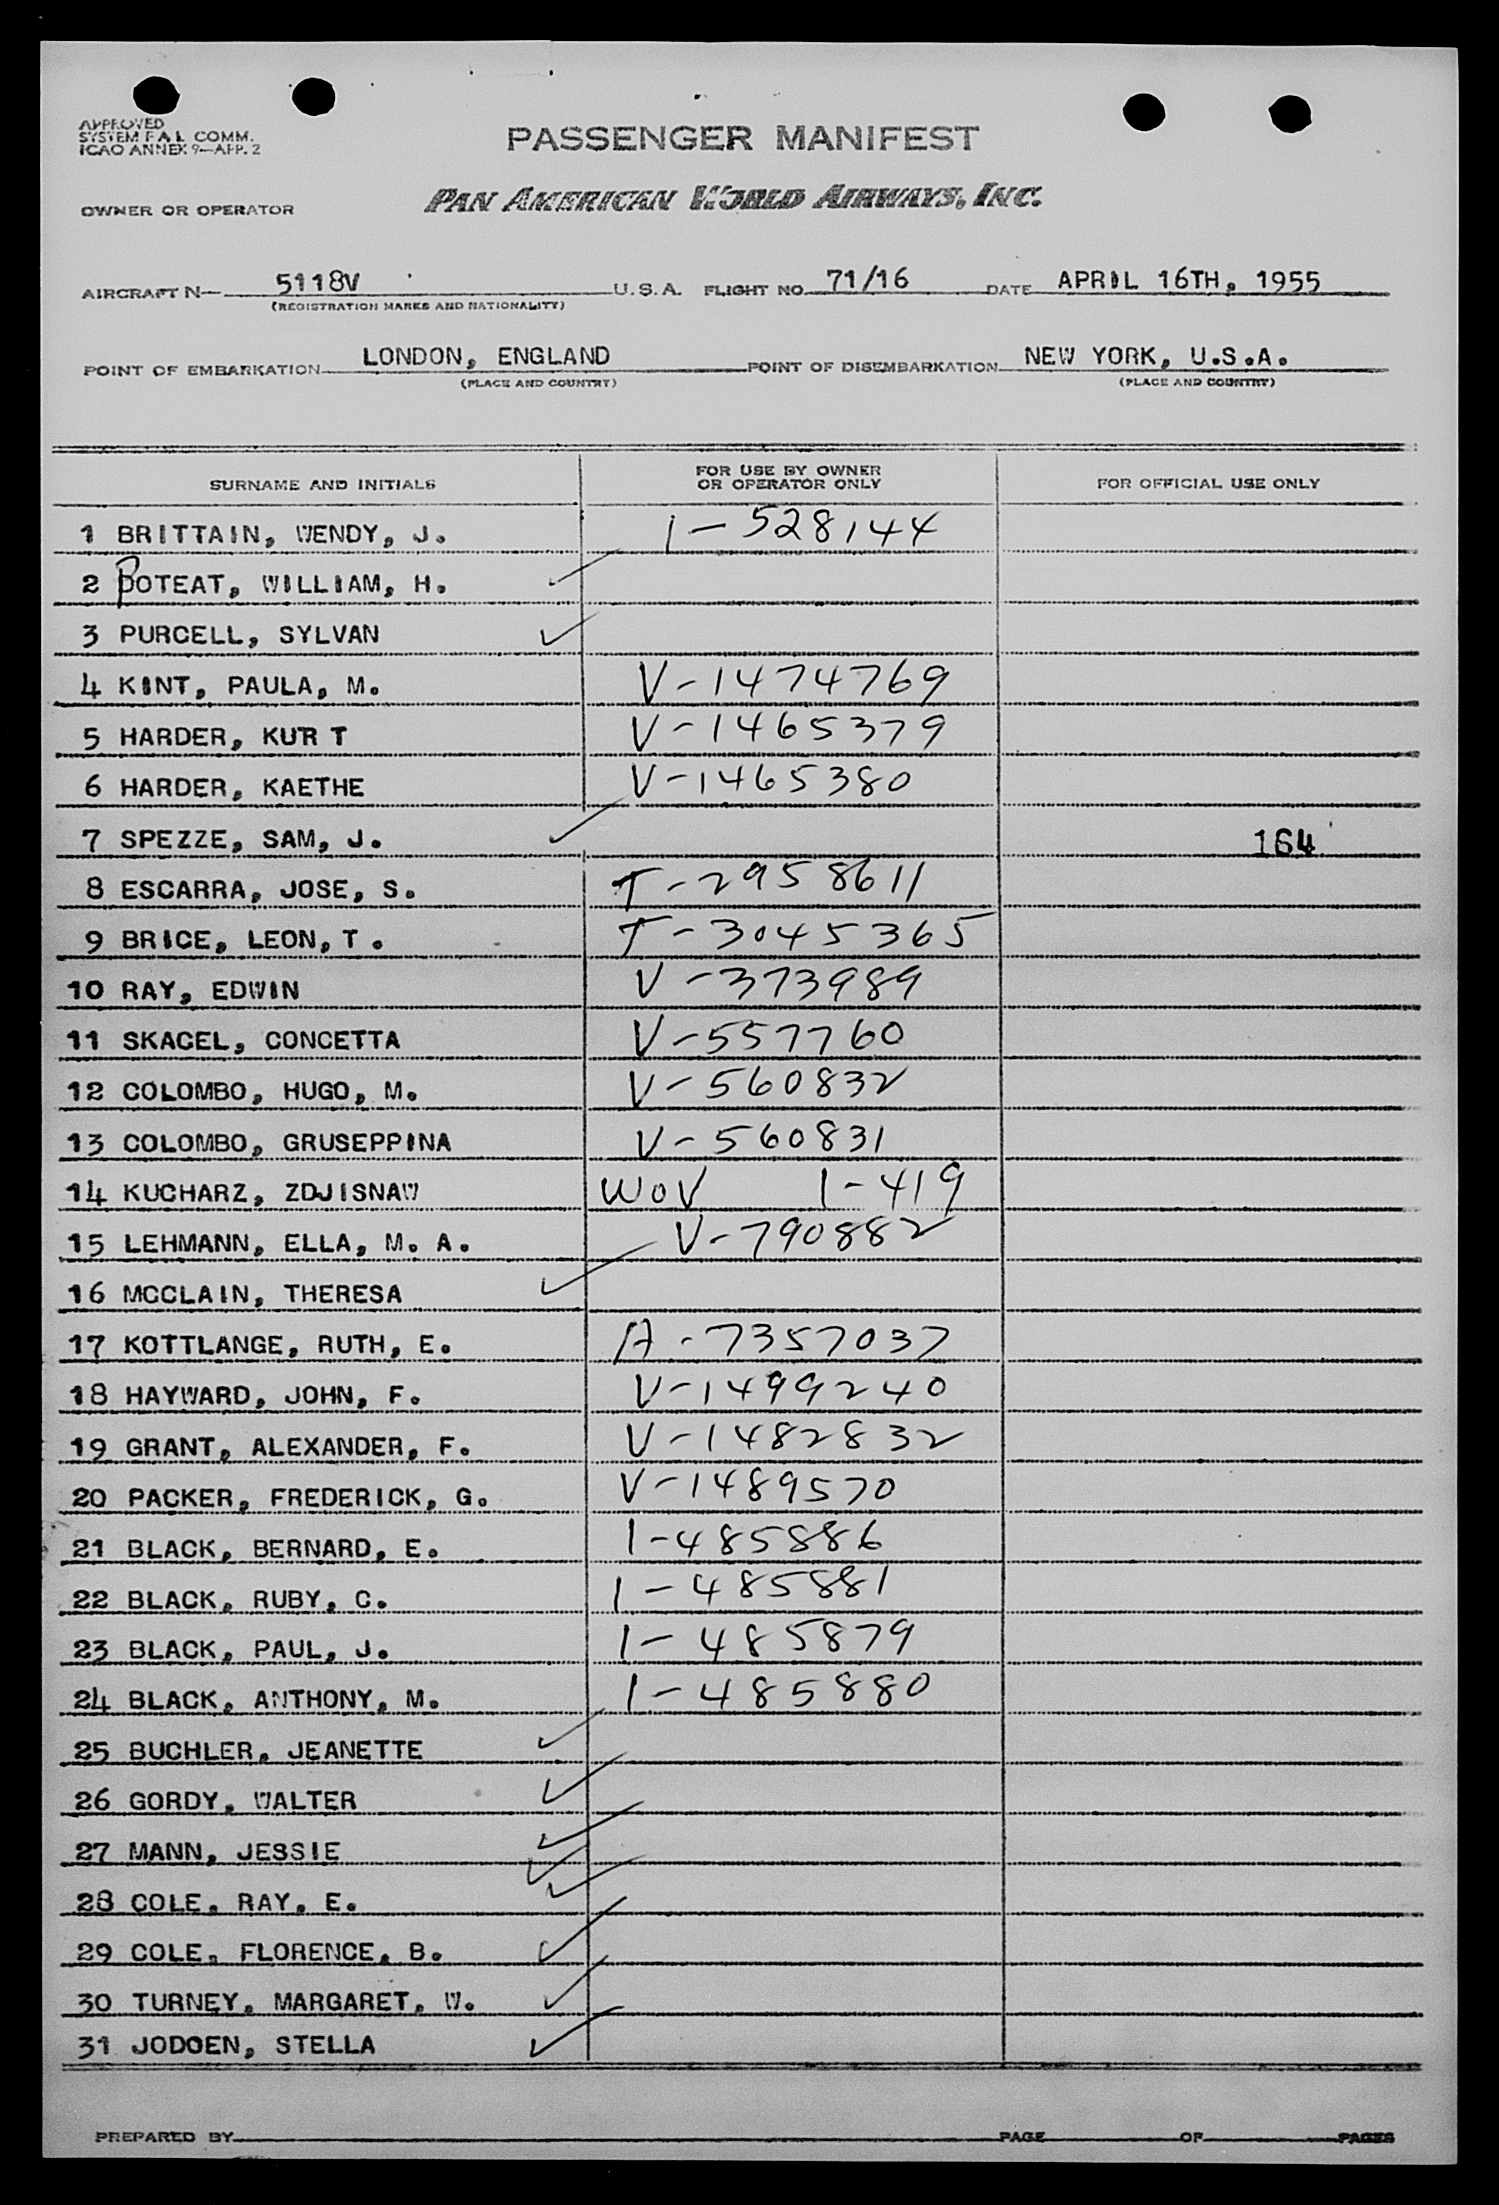 APPROVED
SYSTEM F A L COMM.
ICAO ANNEX 9—APP. 2
PASSENGER MANIFEST
OWNER OR OPERATOR PAN AMERICAN WORLD AIRWAYS, INC.
AIRCRAFT N— 5118V U.S.A. FLIGHT NO. 71/16 DATE APRIL 16TH, 1955
(REGISTRATION MARKS AND NATIONALITY)
POINT OF EMBARKATION LONDON, ENGLAND POINT OF DISEMBARKATION NEW YORK, U.S.A.
(PLACE AND COUNTRY) (PLACE AND COUNTRY)
SURNAME AND INITIALS FOR USE BY OWNER OR OPERATOR ONLY FOR OFFICIAL USE ONLY
1 BRITTAIN, WENDY, J. 1-528144
2 POTEAT, WILLIAM, H. ✓
3 PURCELL, SYLVAN ✓
4 KINT, PAULA, M. V-1474769
5 HARDER, KURT V-1465379
6 HARDER, KAETHE V-1465380
7 SPEZZE, SAM, J. ✓ 164
8 ESCARRA, JOSE, S. T-2958611
9 BRICE, LEON, T. T-3045365
10 RAY, EDWIN V-373989
11 SKACEL, CONCETTA V-557760
12 COLOMBO, HUGO, M. V-560832
13 COLOMBO, GRUSEPPINA V-560831
14 KUCHARZ, ZDJISNAW WOV 1-419
15 LEHMANN, ELLA, M. A. V-790882
16 MCCLAIN, THERESA ✓
17 KOTTLANGE, RUTH, E. A-7357037
18 HAYWARD, JOHN, F. V-1499240
19 GRANT, ALEXANDER, F. V-1482832
20 PACKER, FREDERICK, G. V-1489570
21 BLACK, BERNARD, E. 1-485886
22 BLACK, RUBY, C. 1-485881
23 BLACK, PAUL, J. 1-485879
24 BLACK, ANTHONY, M. 1-485880
25 BUCHLER, JEANETTE ✓
26 GORDY, WALTER ✓
27 MANN, JESSIE ✓
28 COLE, RAY, E. ✓ ✓
29 COLE, FLORENCE, B. ✓
30 TURNEY, MARGARET, W. ✓
31 JODOEN, STELLA ✓
PREPARED BY PAGE OF PAGES